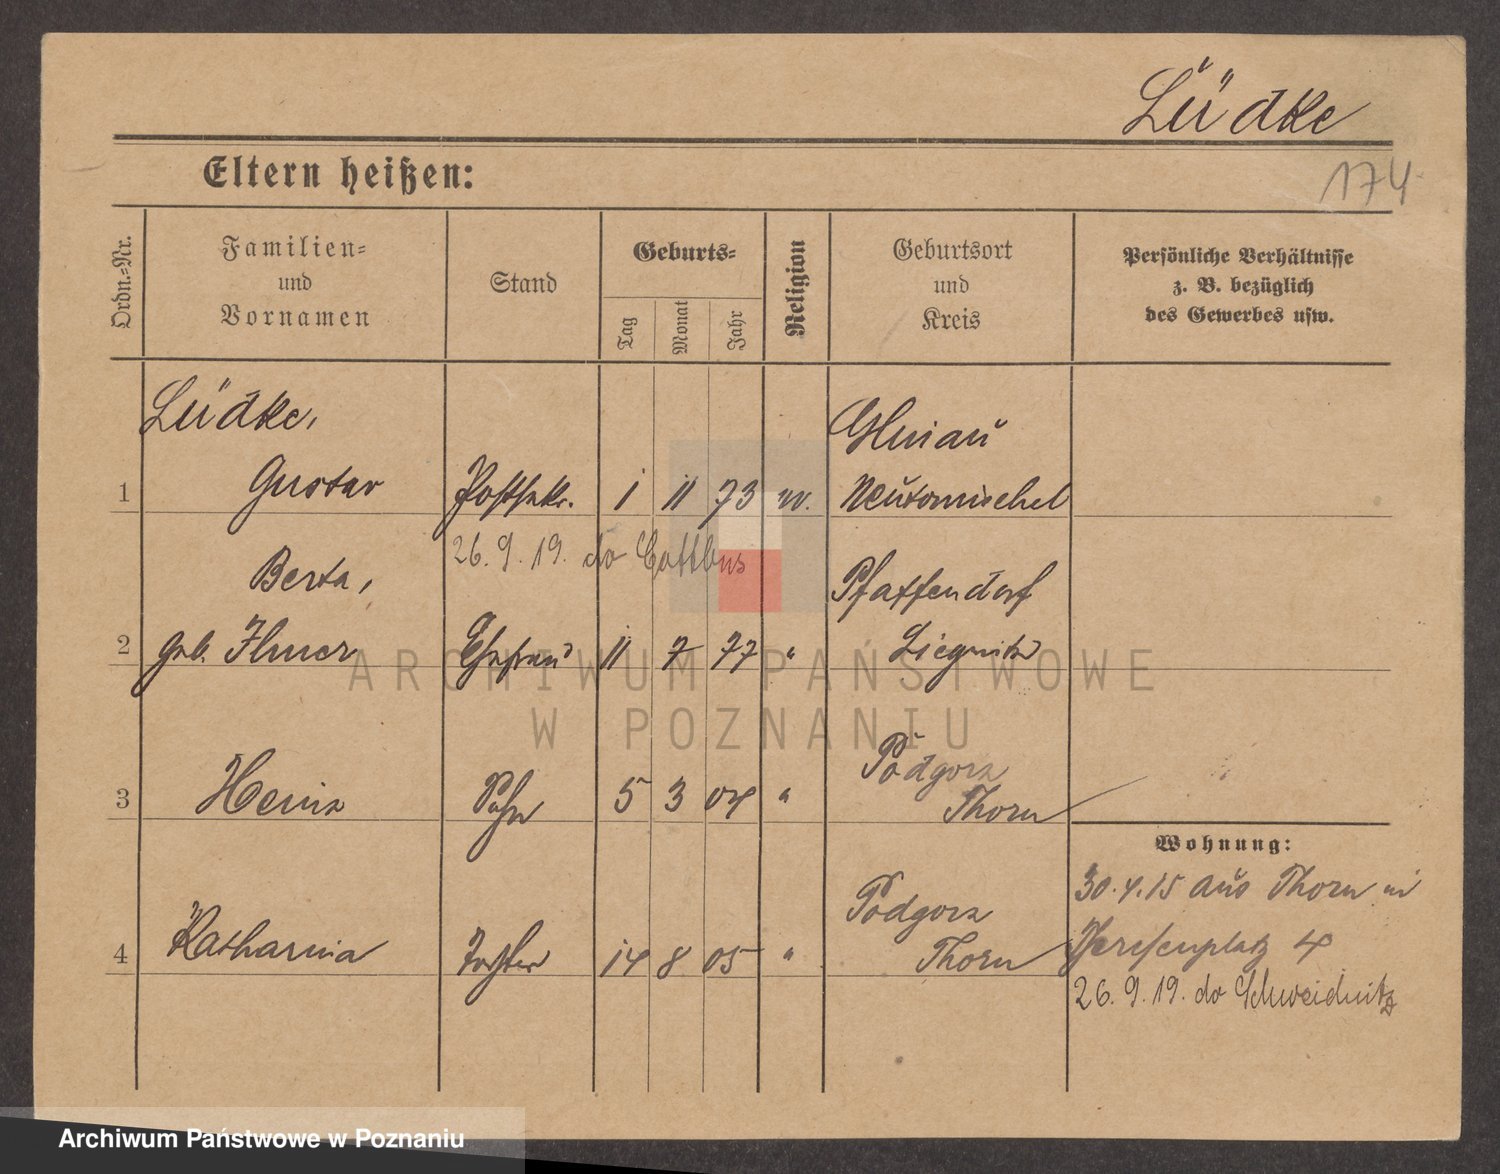 Lüdke
Eltern heißen:
174
Ordn.=Nr.
Familien=
und
Vornamen
Stand
Geburts=
Tag
Monat
Jahr
Religion
Geburtsort
und
Kreis
Persönliche Verhältnisse
z. B. bezüglich
des Gewerbes usw.
Lüdke,
Glinau
1 Gustav Postsekr. 1 11 73 ev. Neutomischel
26. 9. 19. do Cottbus
Berta,
Pfaffendorf
2 geb. Ilmer Ehefrau 11 7 77 " Liegnitz
Podgorz
3 Heinz Sohn 5 3 04 " Thorn
Wohnung:
30.4.15 aus Thorn in
Podgorz
4 Katharina Tochter 14 8 05 " Thorn
4
26. 9. 19. do Schweidnitz
ARCHIWUM PAŃSTWOWE
W POZNANIU
Archiwum Państwowe w Poznaniu